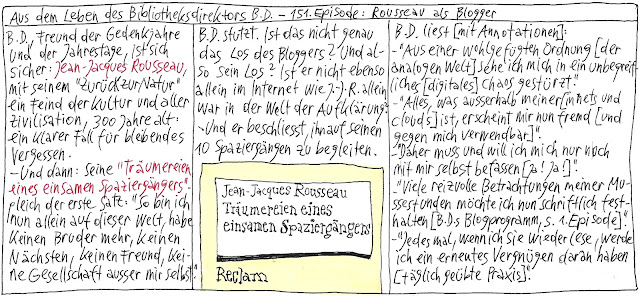 Aus dem Leben des Bibliotheksdirektors B.D. – 151. Episode: Rousseau als Blogger
B.D., Freund der Gedenkjahre
und der Jahrestage, ist sich
sicher: Jean-Jacques Rousseau,
mit seinem "Zurück zur Natur"
ein Feind der Kultur und aller
Zivilisation, 300 Jahre alt:
ein klarer Fall für bleibendes
Vergessen.
– Und dann: seine "Träumereien
eines einsamen Spaziergängers",
gleich der erste Satz: "So bin ich
nun allein auf dieser Welt, habe
keinen Bruder mehr, keinen
Nächsten, keinen Freund, kei-
ne Gesellschaft ausser mir selbst."
B.D. stutzt. Ist das nicht genau
das Los des Bloggers? Und al-
so sein Los? Ist er nicht ebenso
allein im Internet wie J.-J. R. allein
war in der Welt der Aufklärung?
– Und er beschliesst, ihn auf seinen
10 Spaziergängen zu begleiten.
Jean-Jacques Rousseau
Träumereien eines
einsamen Spaziergängers
Reclam
B.D. liest [mit Annotationen]:
– "Aus einer wohlgefügten Ordnung [der
analogen Welt] sehe ich mich in ein unbegreif-
liches [digitales] Chaos gestürzt."
– "Alles, was ausserhalb meiner [innets und
clouds] ist, erscheint mir nun fremd [und
gegen mich verwendbar]."
– "Daher muss und will ich mich nur noch
mit mir selbst befassen [ja! ja!]."
– "Viele reizvolle Betrachtungen meiner Mu-
ssestunden möchte ich nun schriftlich fest-
halten [B.D.s Blogprogramm, s. 1. Episode]."
– "Jedes mal, wenn ich sie wieder lese, werde
ich ein erneutes Vergnügen daran haben
[täglich geübte Praxis]."